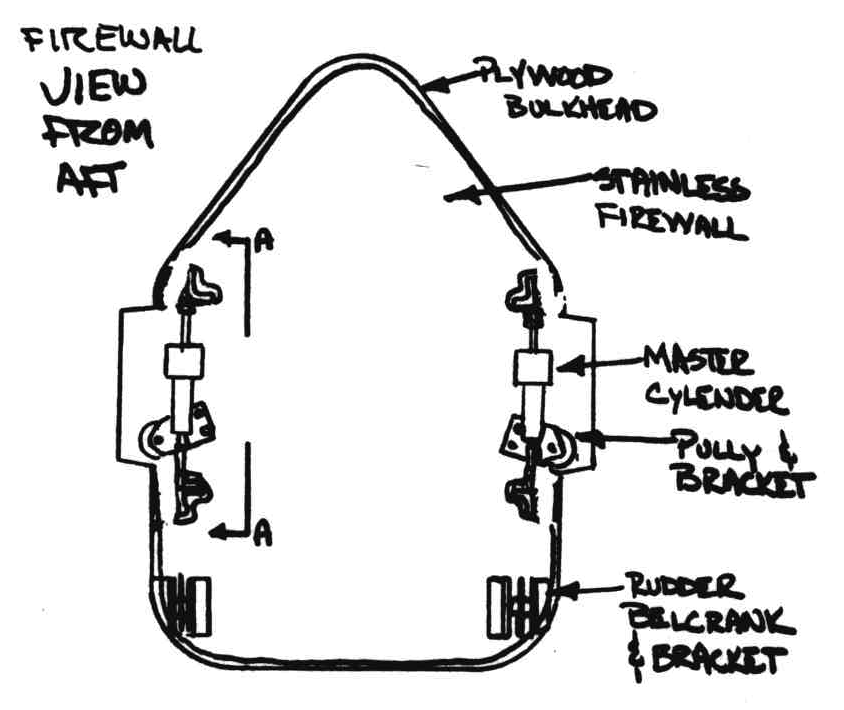 FIREWALL
VIEW
FROM
AFT
PLYWOOD
BULKHEAD
STAINLESS
FIREWALL
A
MASTER
CYLENDER
PULLY &
BRACKET
A
RUDDER
BELCRANK
& BRACKET